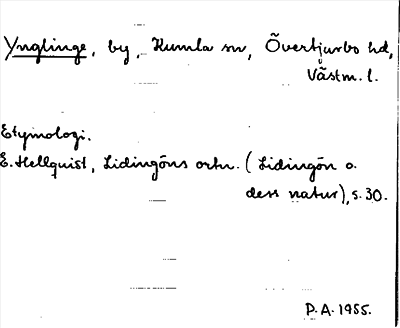 Ynglinge, by, Kumla sn, Övertjurbo hd,
Västm. l.
Etymologi.
E. Hellquist, Lidingöns ortn. (Lidingön o.
dess natur), s. 30.
P.A. 1955.